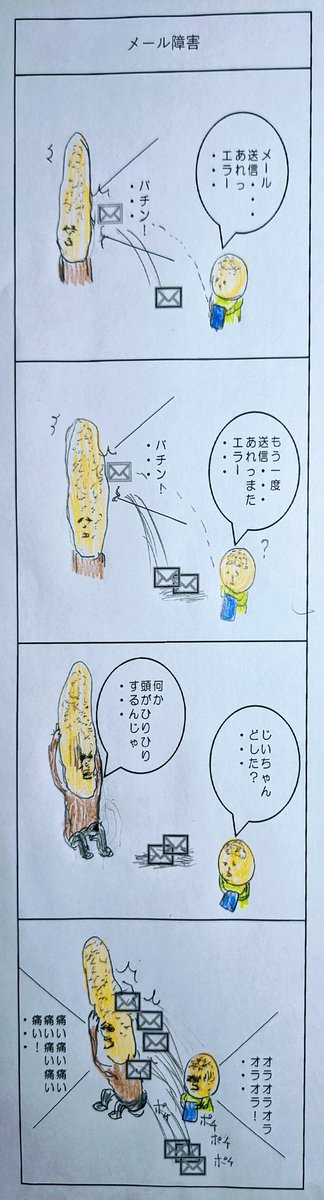 メール障害
メール
送信・・・
あれっ
エラー
・・・・
バチン!
・・・・
もう一度
送信・・・
あれっまた
エラー
・・・・
バチン!
・・・・
?
じいちゃん
どした?
・・・・
何か
頭がひりひり
するんじゃ
・・・・
オラオラオラ
オラオラ!
・・・・
ポチ
ポチ
ポチ
ポチ
痛い痛い痛い
痛い痛い痛い
痛い!
・・・